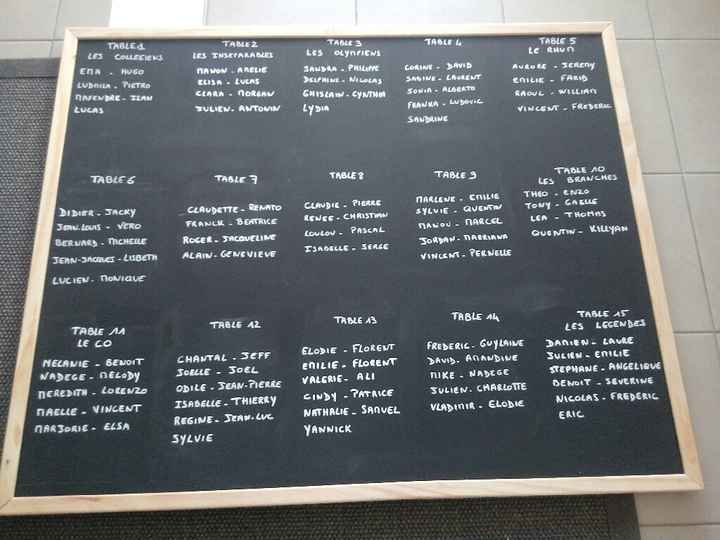 TABLE 1
LES COLLEGIENS
EMA - HUGO
LUDMILA - PIETRO
MAFENDRE - JEAN
LUCAS
TABLE 2
LES INSEPARABLES
MANON - AMELIE
ELISA - LUCAS
CLARA - MORGAN
JULIEN - ANTONIN
TABLE 3
LES OLYMPIENS
SANDRA - PHILIPPE
DELPHINE - NICOLAS
GHISLAIN - CYNTHIA
LYDIA
TABLE 4
CORINE - DAVID
SABINE - LAURENT
SONIA - ALBERTO
FRANKA - LUDOVIC
SANDRINE
TABLE 5
LE RHUM
AURORE - JEREMY
EMILIE - FARID
RAOUL - WILLIAM
VINCENT - FREDERIC
TABLE 6
DIDIER - JACKY
JEAN.LOUIS - VERO
BERNARD - MICHELLE
JEAN-JACQUES - LISBETH
LUCIEN - MONIQUE
TABLE 7
CLAUDETTE - RENATO
FRANCK - BEATRICE
ROGER - JACQUELINE
ALAIN - GENEVIEVE
TABLE 8
CLAUDIE - PIERRE
RENEE - CHRISTIAN
LOULOU - PASCAL
ISABELLE - SERGE
TABLE 9
MARLENE - EMILIE
SYLVIE - QUENTIN
MANOU - MARCEL
JORDAN - MARRIANA
VINCENT - PERNELLE
TABLE 10
LES BRANCHES
THEO - ENZO
TONY - GAELLE
LEA - THOMAS
QUENTIN - KILLYAN
TABLE 11
LE CO
MELANIE - BENOIT
NADEGE - MELODY
MEREDITH - LORENZO
MAELLE - VINCENT
MARJORIE - ELSA
TABLE 12
CHANTAL - JEFF
JOELLE - JOEL
ODILE - JEAN-PIERRE
ISABELLE - THIERRY
REGINE - JEAN.LUC
SYLVIE
TABLE 13
ELODIE - FLORENT
EMILIE - FLORENT
VALERIE - ALI
CINDY - PATRICE
NATHALIE - SAMUEL
YANNICK
TABLE 14
FREDERIC - GUYLAINE
DAVID - AMANDINE
MIKE - NADEGE
JULIEN - CHARLOTTE
VLADIMIR - ELODIE
TABLE 15
LES LEGENDES
DAMIEN - LAURE
JULIEN - EMILIE
STEPHANE - ANGELIQUE
BENOIT - SEVERINE
NICOLAS - FREDERIC
ERIC